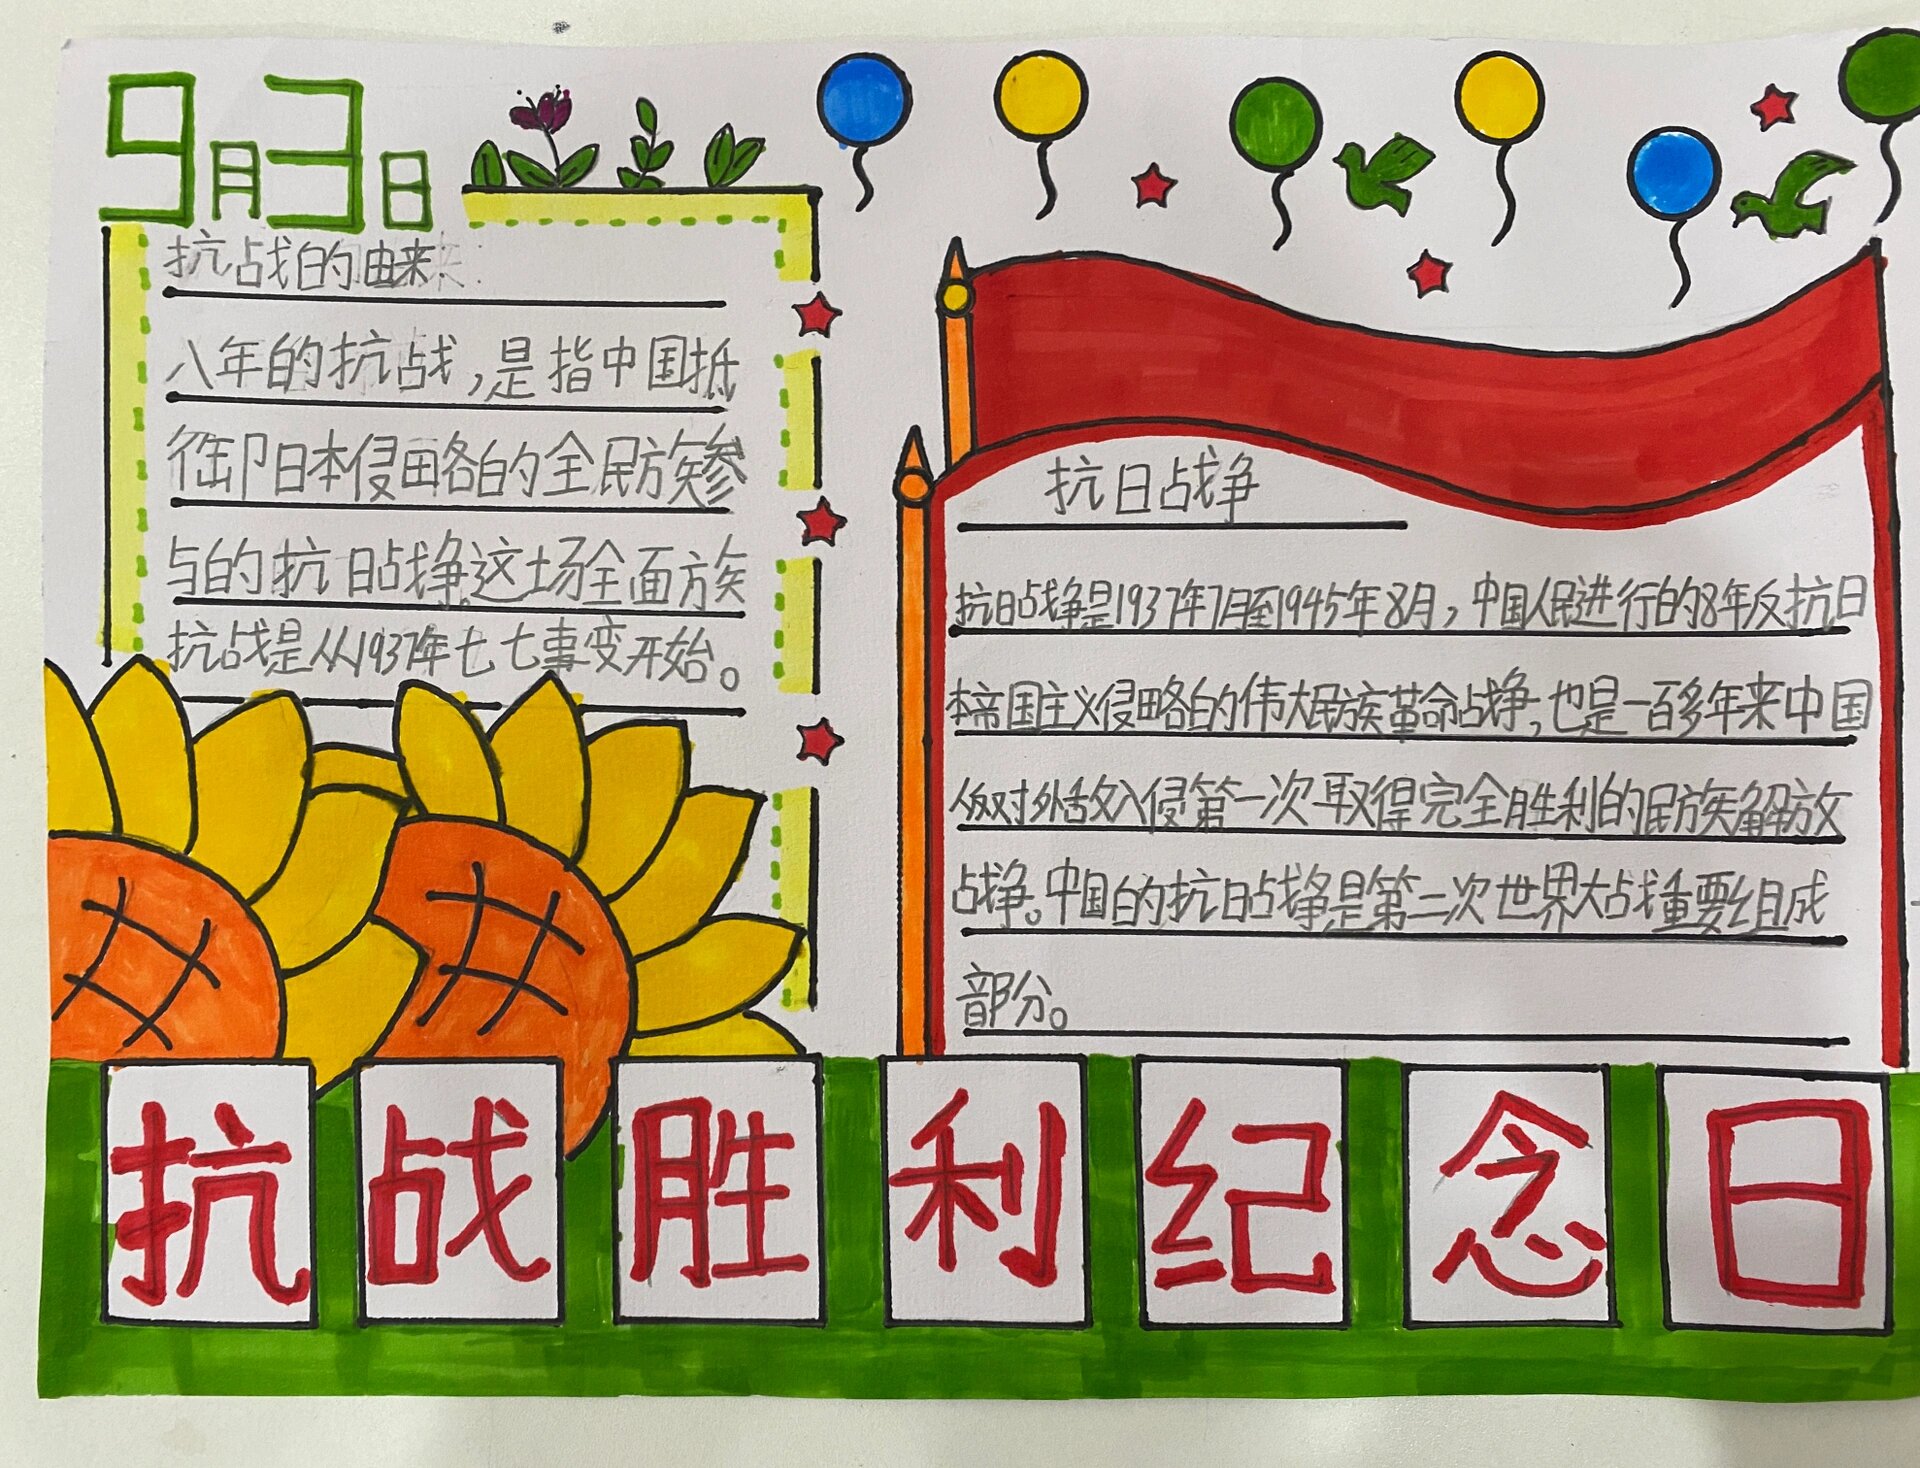 9月3日
抗战的由来:
八年的抗战,是指中国抵
御日本侵略的全民族参
与的抗日战争。这场全面族
抗战是从1937年七七事变开始。
抗日战争
抗日战争是1937年7月至1945年8月,中国人民进行的8年反抗日
本帝国主义侵略的伟大民族革命战争,也是一百多年来中国
人反对外敌入侵第一次取得完全胜利的民族解放
战争。中国的抗日战争是第二次世界大战重要组成
部分。
抗战胜利纪念日